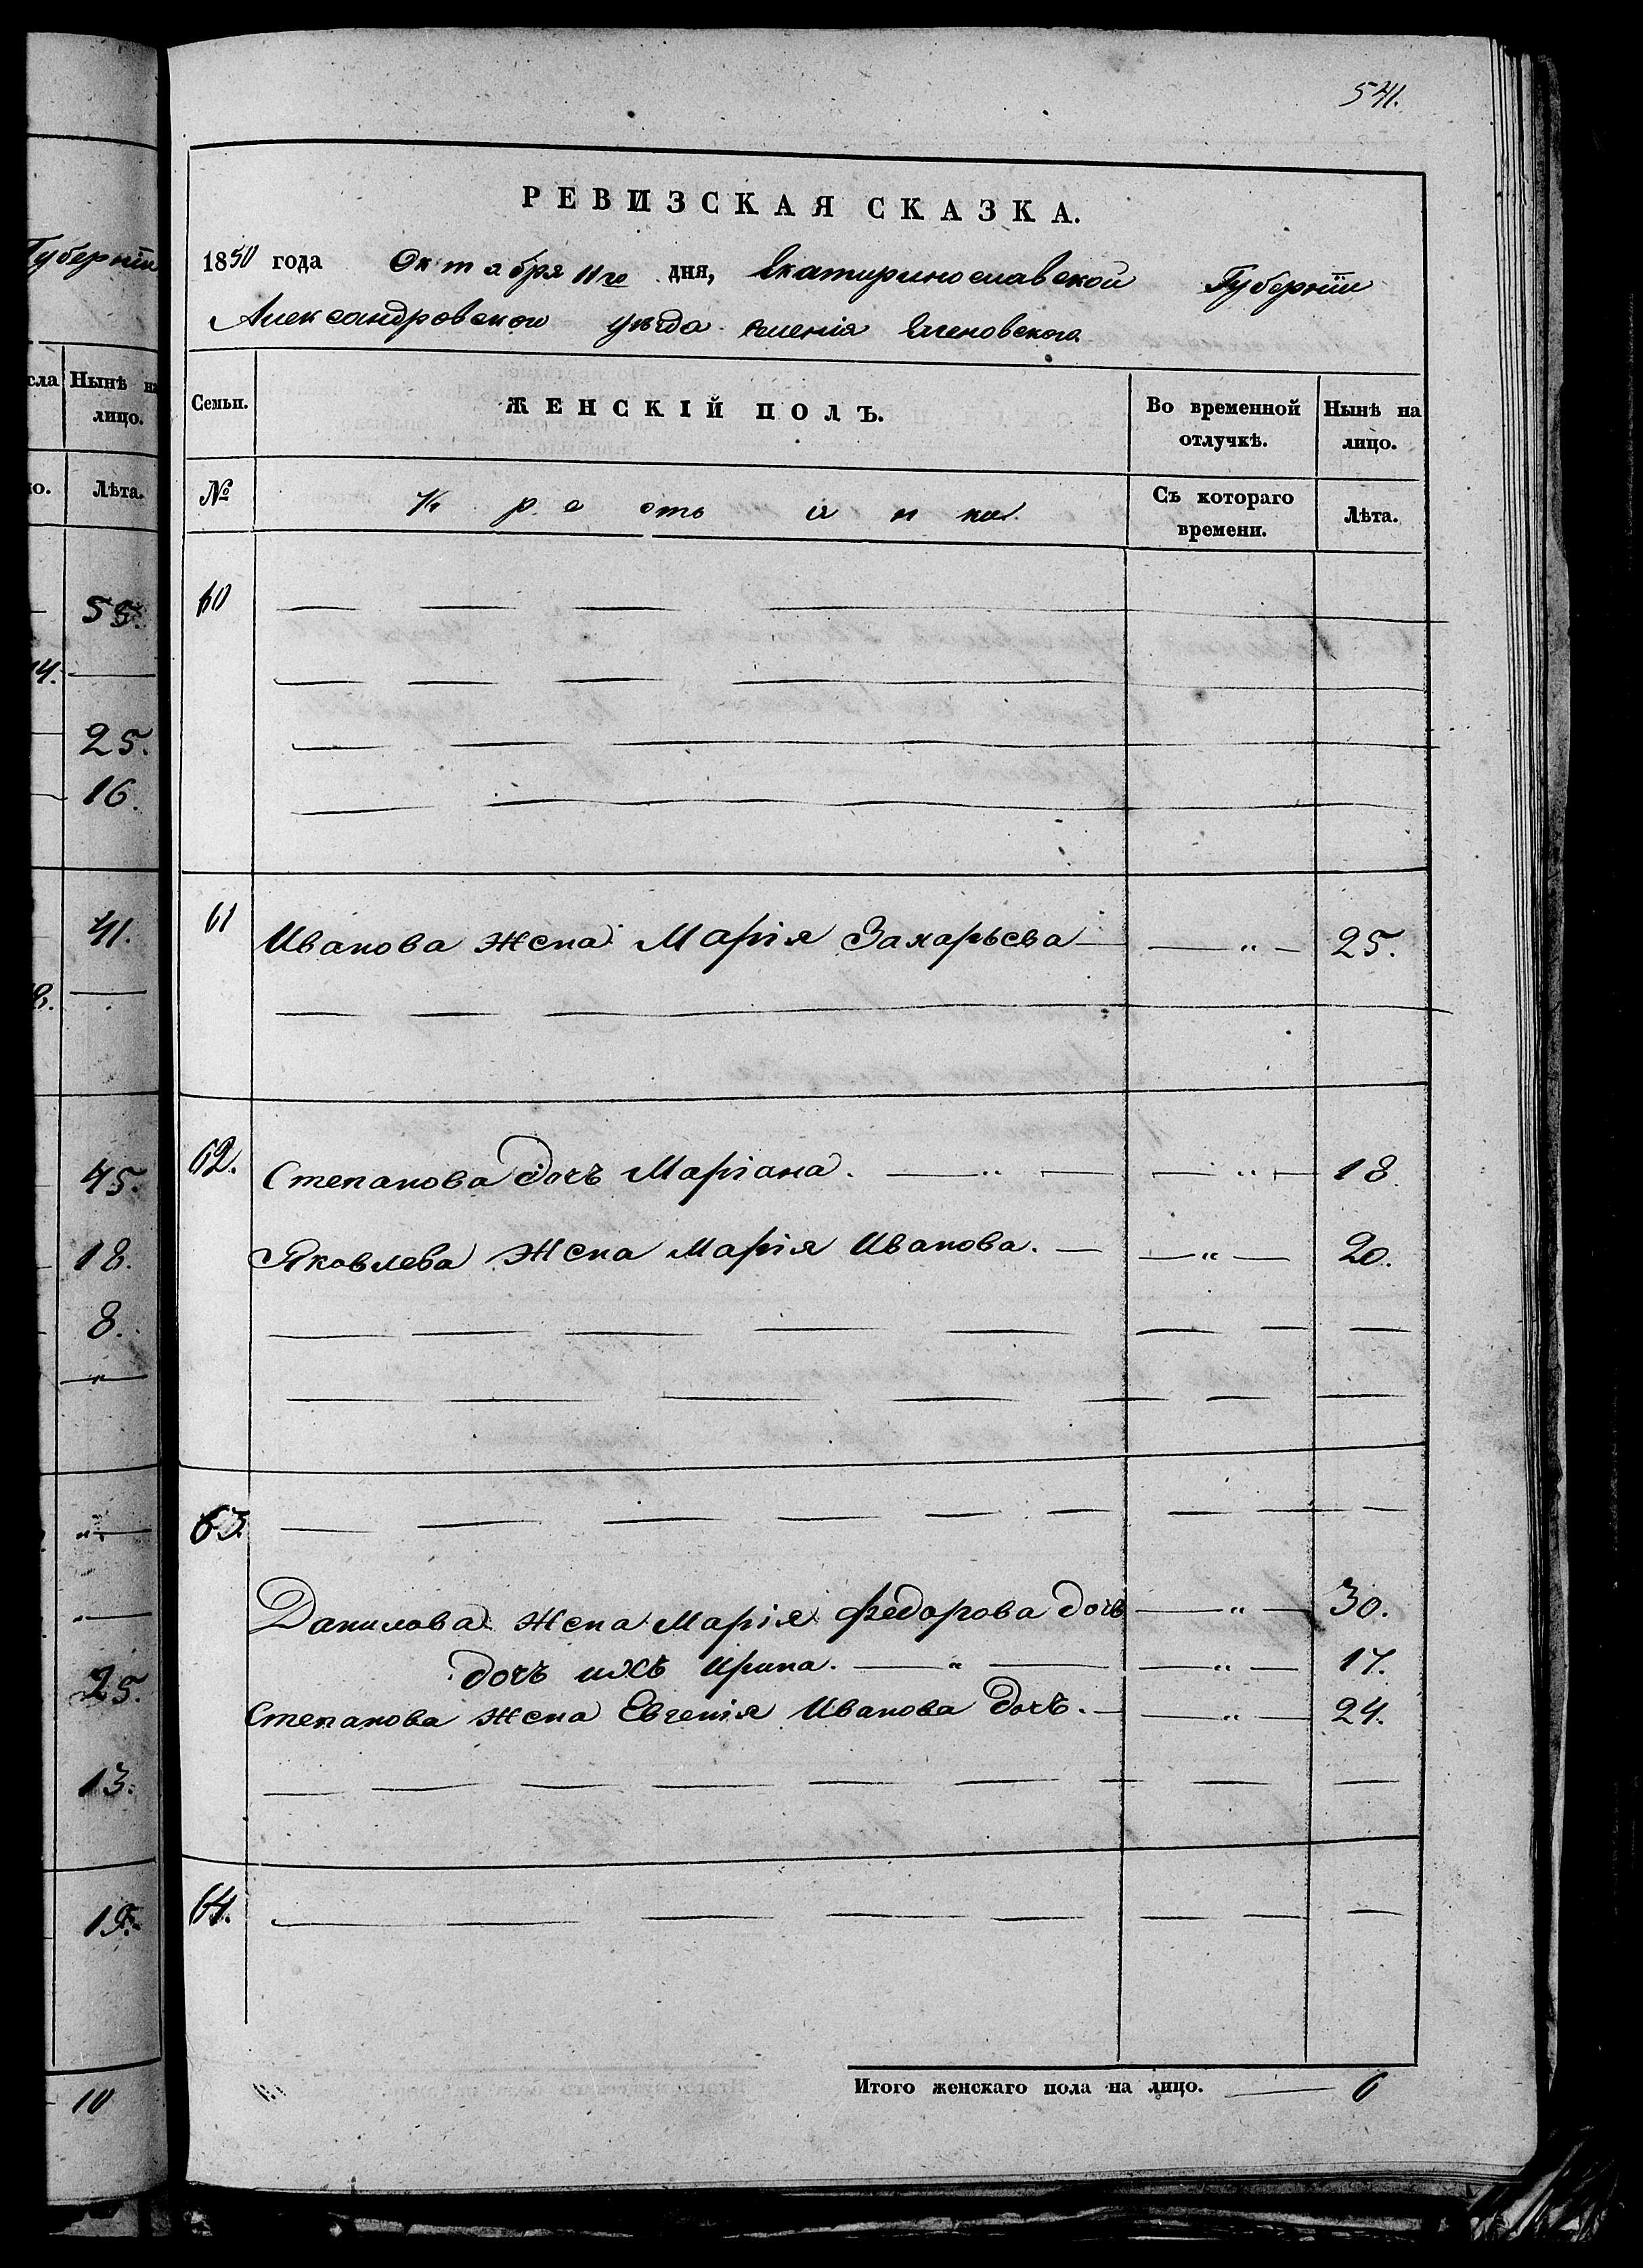 541.
РЕВИЗСКАЯ СКАЗКА.
1850 года Октября 11го дня, Екатиринославской Губерніи
Александровского уѣзда имѣнія
Семьи. ЖЕНСКІЙ ПОЛЪ. Во временной отлучкѣ. Нынѣ на лицо.
№ Крестьянки. Съ котораго времени. Лѣта.
60
61 Иванова жена Марія Захарьева — " — 25.
62. Степанова дочъ Маріана. — " — — " — 18.
Яковлева жена Марія Иванова. — — " — 20.
63.
Данилова жена Марія Федорова дочъ — " — 30.
дочъ ихъ Ирина. — " — — " — 17.
Степанова жена Евгенія Иванова дочъ. — — " — 24.
64.
Итого женскаго пола на лицо. — 6
Губерніи
Нынѣ на
лицо.
Лѣта.
55.
14.
25.
16.
41.
8.
45.
18.
8.
25.
13.
10